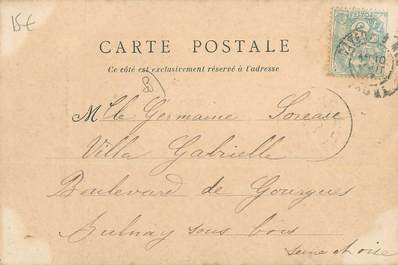 15€
CARTE POSTALE
Ce côté est exclusivement réservé à l'adresse
88
Mlle Germaine Soreau
Villa Gabrielle
Boulevard de Gourgues
Aulnay sous bois
Seine et oise